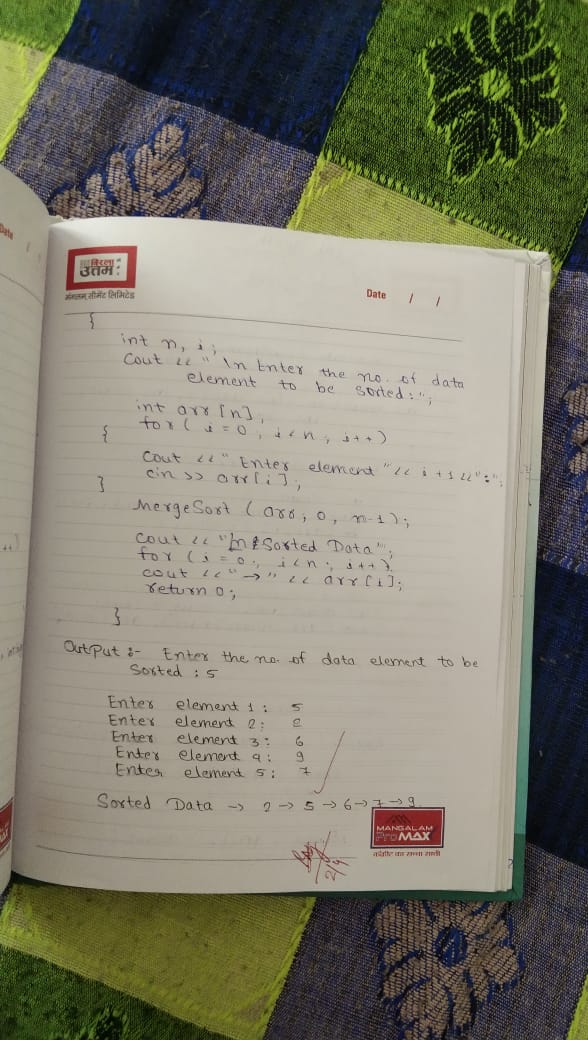 बिरला
उत्तम
मंगलम् सीमेंट लिमिटेड
Date / /
{
int n, i;
Cout << "\n Enter the no. of data
element to be sorted:";
int arr [n];
for ( i = 0 ; i < n ; i++)
{
Cout << " Enter element " << i + 1 << ":";
cin >> arr[i];
}
MergeSort (arr, 0, n-1);
Cout << "\n Sorted Data";
for (i = 0; i<n; i++)
cout << "→" << arr[i];
return 0;
}
Output :- Enter the no. of data element to be
Sorted : 5
Enter element 1 : 5
Enter element 2 : 2
Enter element 3 : 6
Enter element 4 : 9
Enter element 5 : 7
Sorted Data → 2 → 5 → 6 → 7 → 9
MANGALAM
ProMAX
कॉंक्रीट का सच्चा साथी
2/9